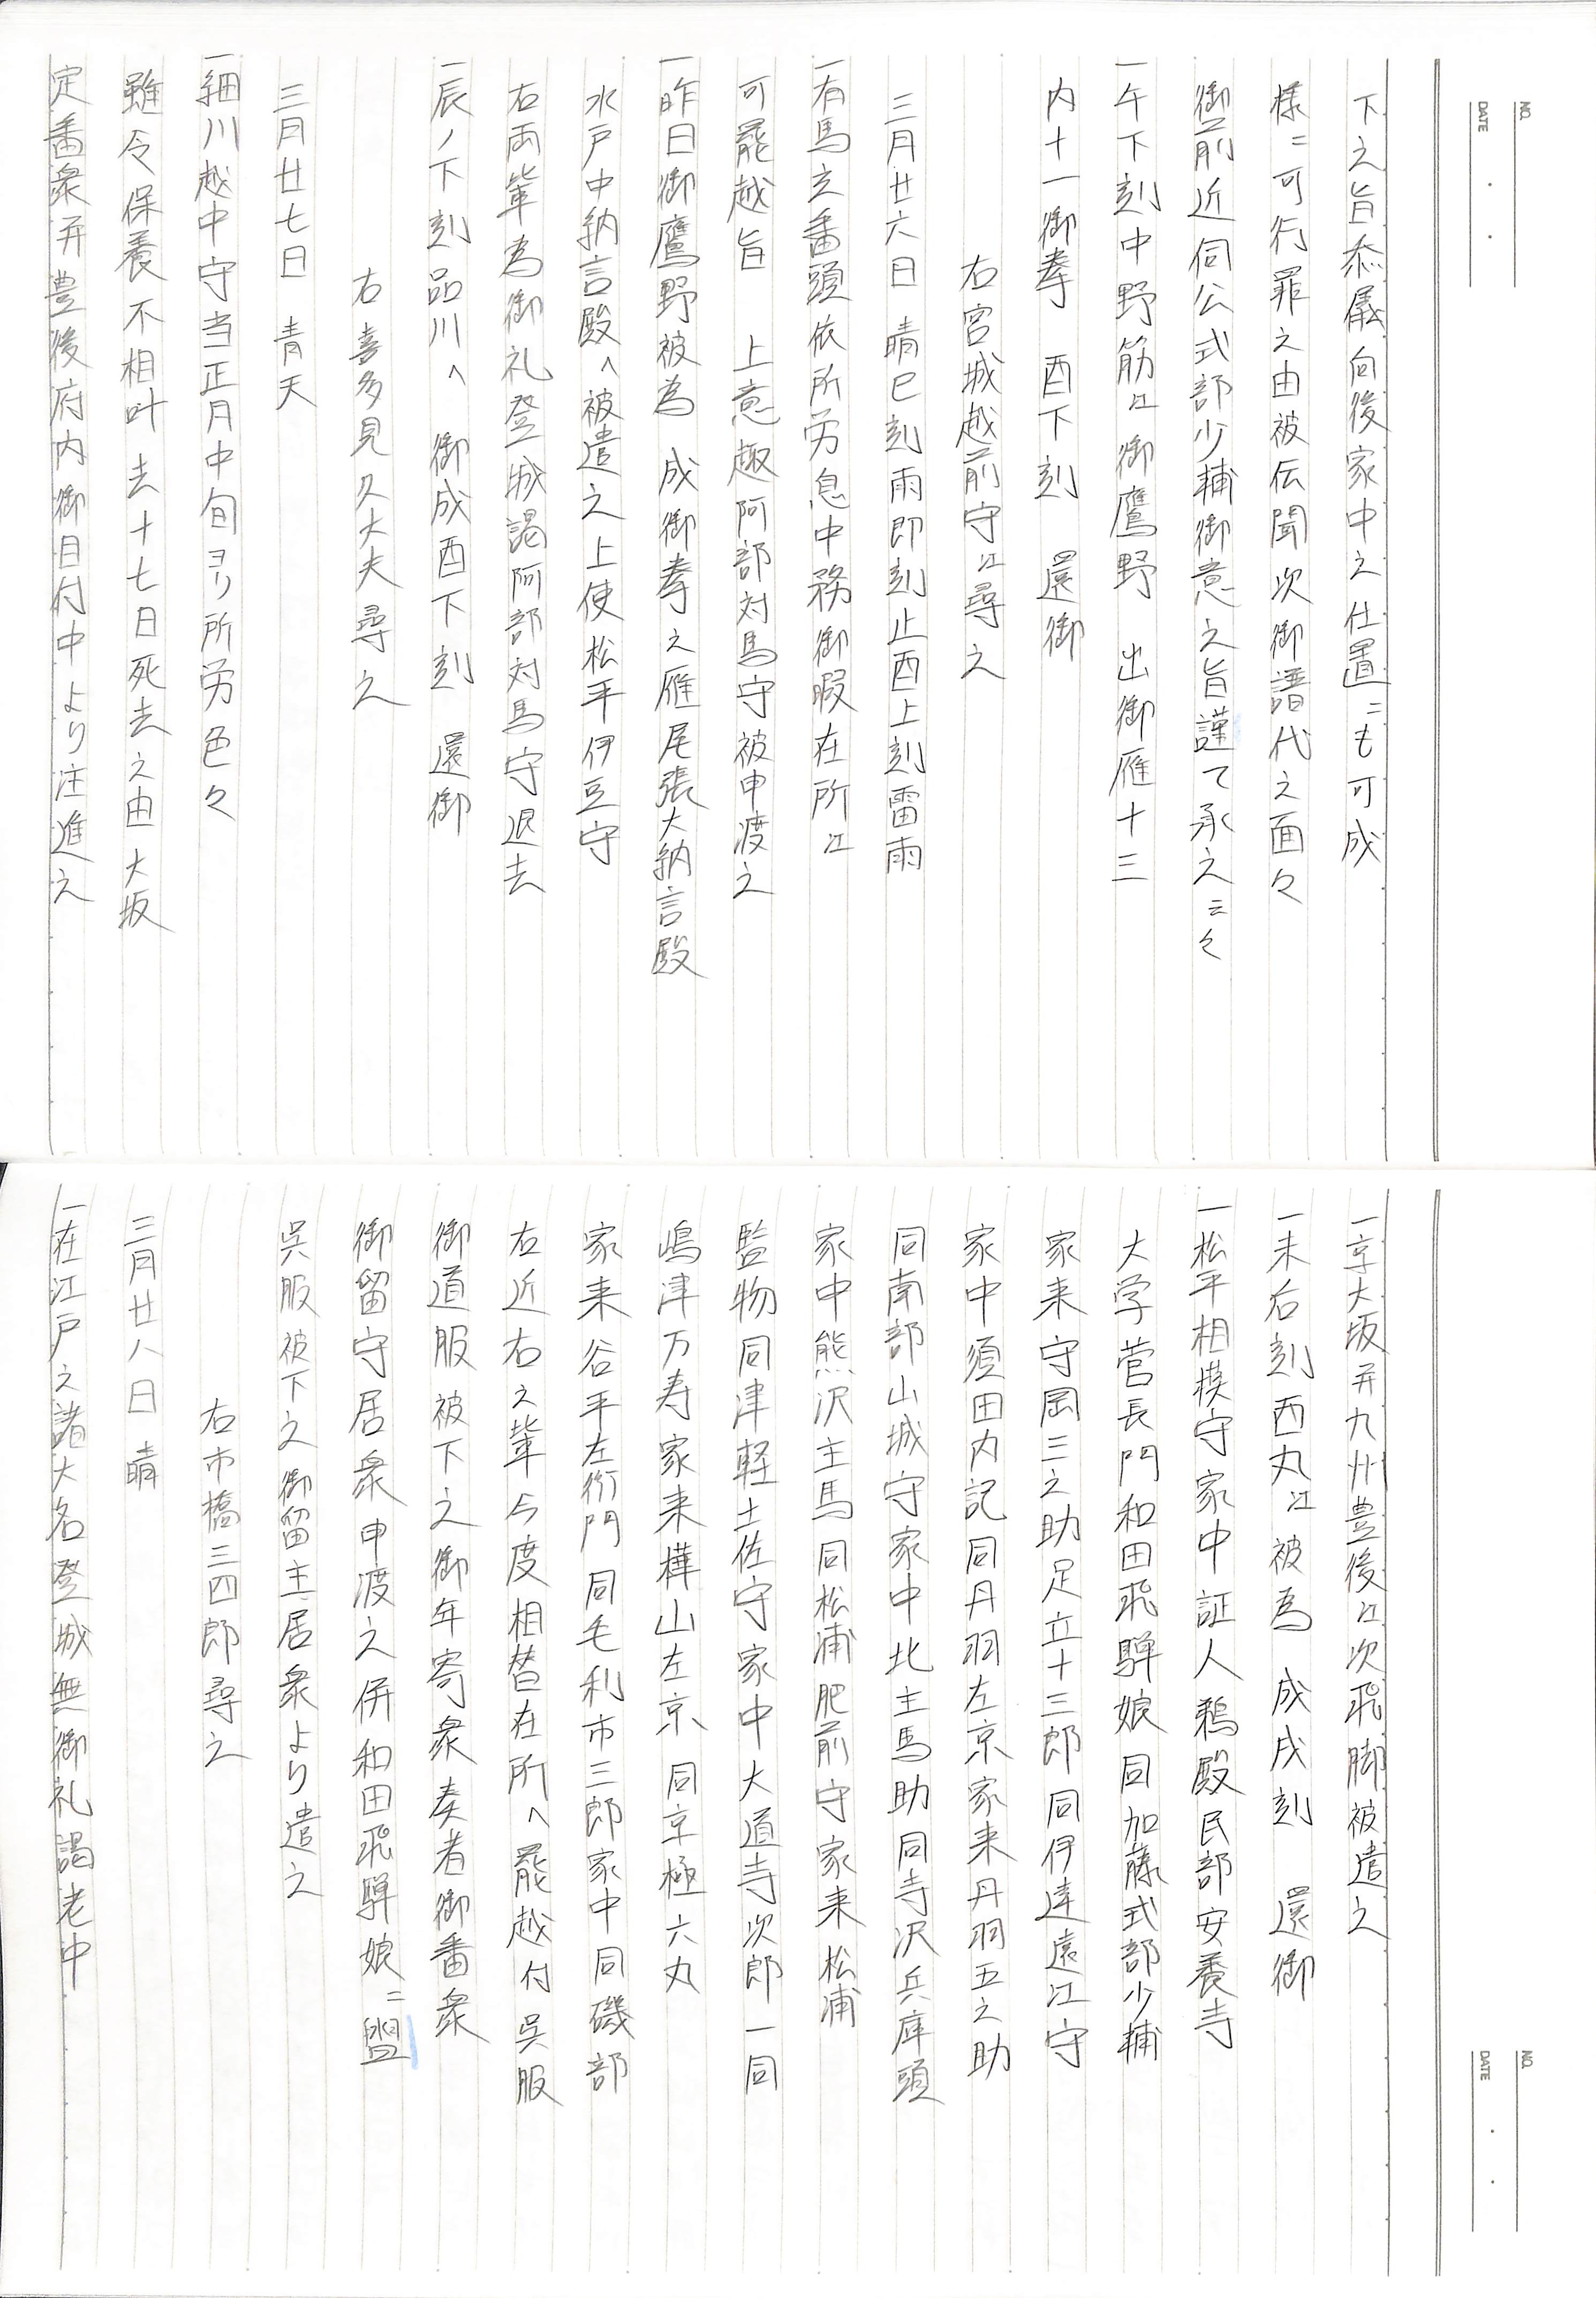 NO.
DATE
下之旨忝儀向後家中之仕置ニも可成
様ニ可行罪之由被伝聞次御譜代之面々
御前近伺公式部少輔御意之旨謹て承之云々
一午下刻中野筋江御鷹野 出御雁十三
内十一御拳 酉下刻 還御
右宮城越前守江尋之
三月廿六日 晴巳刻雨即刻止酉上刻雷雨
一有馬玄番頭依所労息中務御暇在所江
可罷越旨 上意趣阿部対馬守被申渡之
一昨日御鷹野被為 成御拳之雁尾張大納言殿
水戸中納言殿へ被遣之上使松平伊豆守
右両輩為御礼登城謁阿部対馬守退去
一辰ノ下刻品川へ 御成酉下刻 還御
右喜多見久大夫尋之
三月廿七日 青天
一細川越中守当正月中旬ヨリ所労色々
雖令保養不相叶去十七日死去之由大坂
定番衆并豊後府内御目付中より注進之
NO.
DATE
一京大坂并九州豊後江次飛脚被遣之
一未后刻西丸江被為 成戌刻 還御
一松平相模守家中証人鵜殿民部安養寺
大学菅長門和田飛騨娘同加藤式部少輔
家来守岡三之助足立十三郎同伊達遠江守
家中須田内記同丹羽左京家来丹羽五之助
同南部山城守家中北主馬助同寺沢兵庫頭
家中熊沢主馬同松浦肥前守家来松浦
監物同津軽土佐守家中大道寺次郎一同
嶋津万寿家来樺山左京同京極六丸
家来谷平左衛門同毛利市三郎家中同磯部
右近右之輩今度相替在所へ罷越付呉服
御道服被下之御年寄衆奏者御番衆
御留守居衆申渡之併和田飛騨娘ニ盥
呉服被下之御留主居衆より遣之
右市橋三四郎尋之
三月廿八日 晴
一在江戸之諸大名登城無御礼謁老中